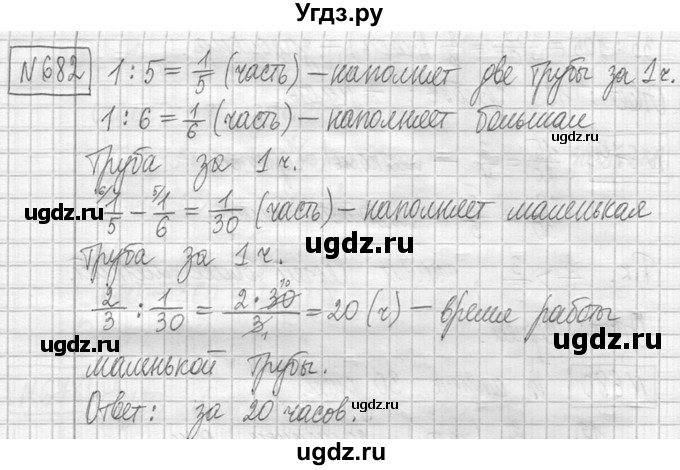 Угдз.ру
№682 1 : 5 = 1/5 (часть) – наполнят две трубы за 1 ч.
1 : 6 = 1/6 (часть) – наполняет большая
труба за 1 ч.
6/1/5 – 5/1/6 = 1/30 (часть) – наполняет маленькая
труба за 1 ч.
2/3 : 1/30 = 2 · 30 10 / 3 1 = 20 (ч) – время работы
маленькой трубы.
Ответ: за 20 часов.
ugdz.ru
ugdz.ru
ugdz.ru
ugdz.ru
ugdz.ru
ugdz.ru
ugdz.ru
ugdz.ru
ugdz.ru